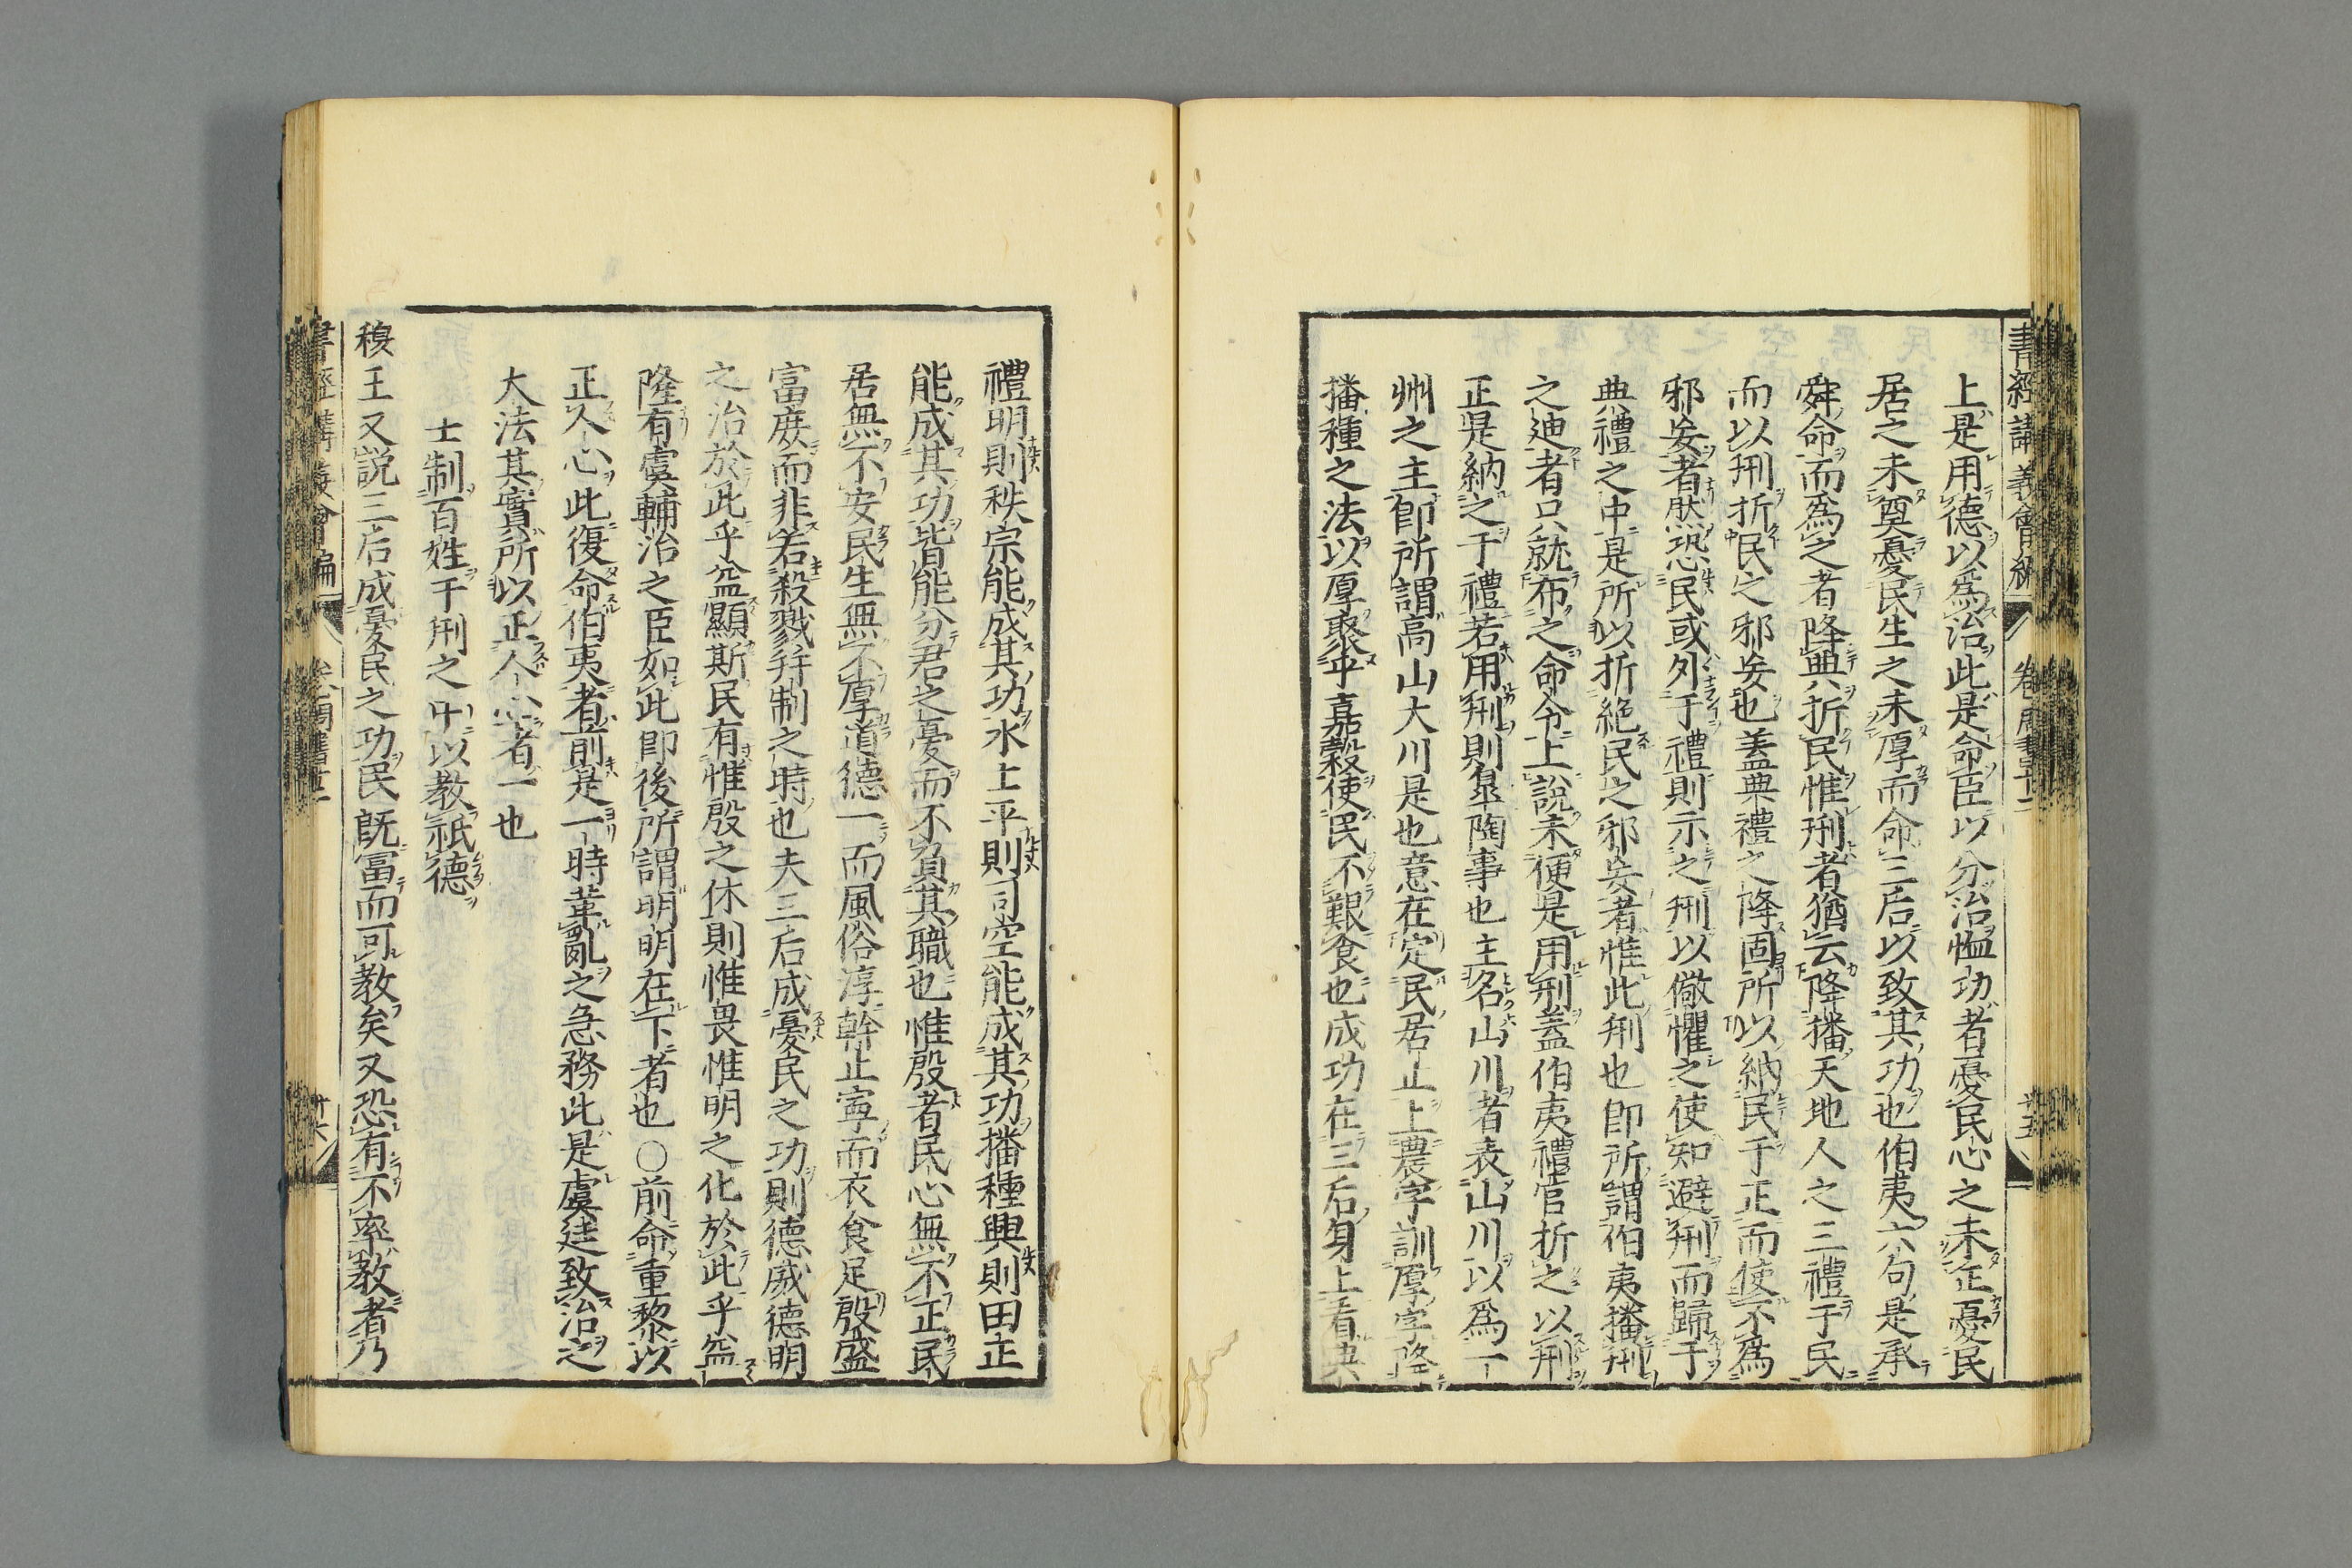 書經講義會編 卷 周書十二 卅五
上是用德以爲治此是命臣以分治恤功者憂民心之未正憂民
居之未奠憂民生之未厚而命三后以致其功也伯夷六句是承
舜命而爲之者降典折民惟刑者猶云降播天地人之三禮于民
而以刑折民之邪妄也蓋典禮之降固所以納民于正而使不爲
邪妄者然恐民或外于禮則示之刑以儆懼之使知避刑而歸于
典禮之中是所以折絶民之邪妄者惟此刑也即所謂伯夷播刑
之迪者只就布之命令上說未便是用刑蓋伯夷禮官折之以刑
正是納之于禮若用刑則皐陶事也主名山川者表山川以爲一
州之主即所謂高山大川是也意在定民居止上農字訓厚字降
播種之法以厚聚乎嘉穀使民不艱食也成功在三后身上看典
禮明則秩宗能成其功水土平則司空能成其功播種興則田正
能成其功皆能分君之憂而不負其職也惟殷者民心無不正民
居無不安民生無不厚道德一而風俗淳幹止寧而衣食足殷盛
富庶而非若殺戮并制之時也夫三后成憂民之功則德威德明
之治於此乎益顯斯民有惟殷之休則惟畏惟明之化於此乎益
隆有虞輔治之臣如此即後所謂明明在下者也○前命重黎以
正人心此復命伯夷者葢前是一時革亂之急務此是虞廷致治之
大法其實所以正人心者一也
士制百姓于刑之中以教祗德
穆王又説三后成憂民之功民旣富而可教矣又恐有不率教者乃
書經講義會編 卷 周書十二 卅六